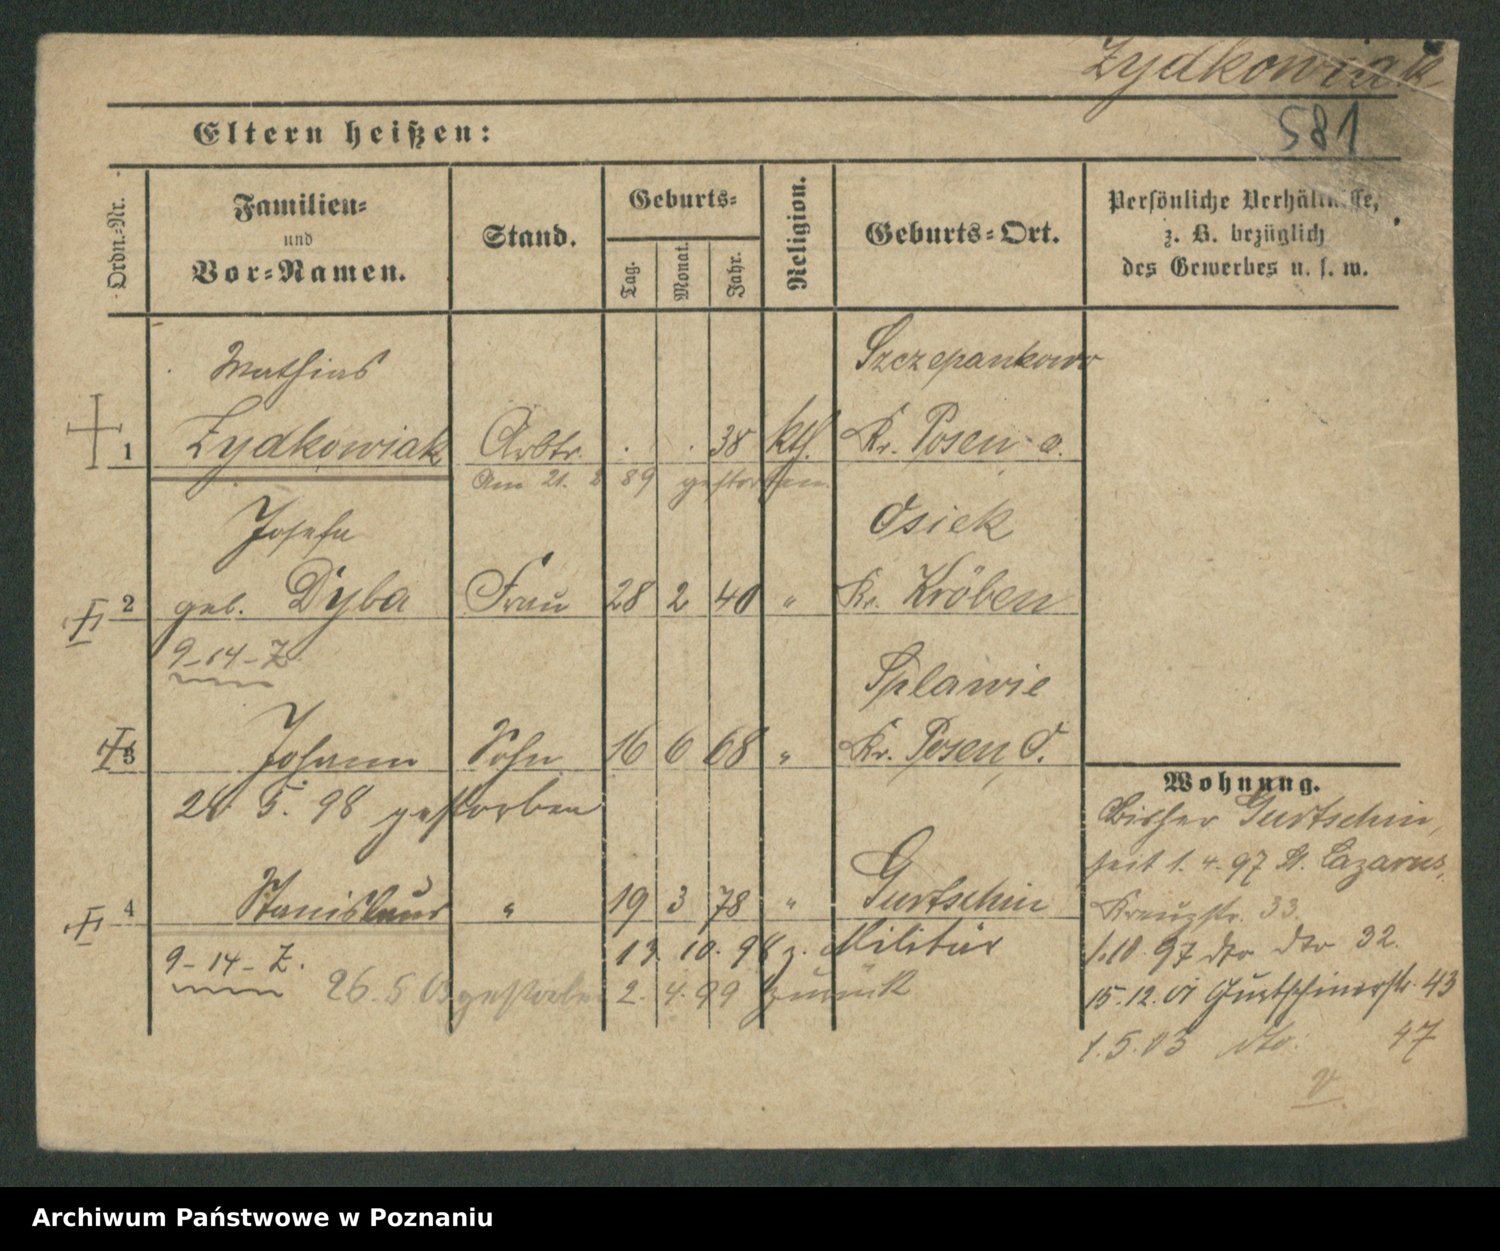 Zydkowiak
581
Eltern heißen:
Ordn.-Nr.
Familien-
und
Vor-Namen.
Stand.
Geburts-
Tag.
Monat.
Jahr.
Religion.
Geburts-Ort.
Persönliche Verhältnisse,
z. B. bezüglich
des Gewerbes u. s. w.
Mathias Szczepankowo
1 Zydkowiak Arbtr. . . 38 kth. Kr. Posen o.
Am 21. 8 89 gestorben
Josefa Osiek
2 geb. Dyba Frau 28 2 40 " Kr. Kröben
9-14-Z.
Splawie
3 Johann Sohn 16 6 68 " Kr. Posen O.
28 5. 98 gestorben
4 Stanislaus " 19 3 78 " Gurtschin
13. 10. 98 z. Militär
9-14-Z. 26. 5 03 gestorben 2. 4. 99 zurück
Wohnung.
Bisher Gurtschin,
seit 1. 4. 97 St. Lazarus,
Kreuzstr. 33.
1.10. 97 dto dto 32.
15.12.01 Gurtschinerstr. 43
1. 5. 03 dto. 47
Archiwum Państwowe w Poznaniu